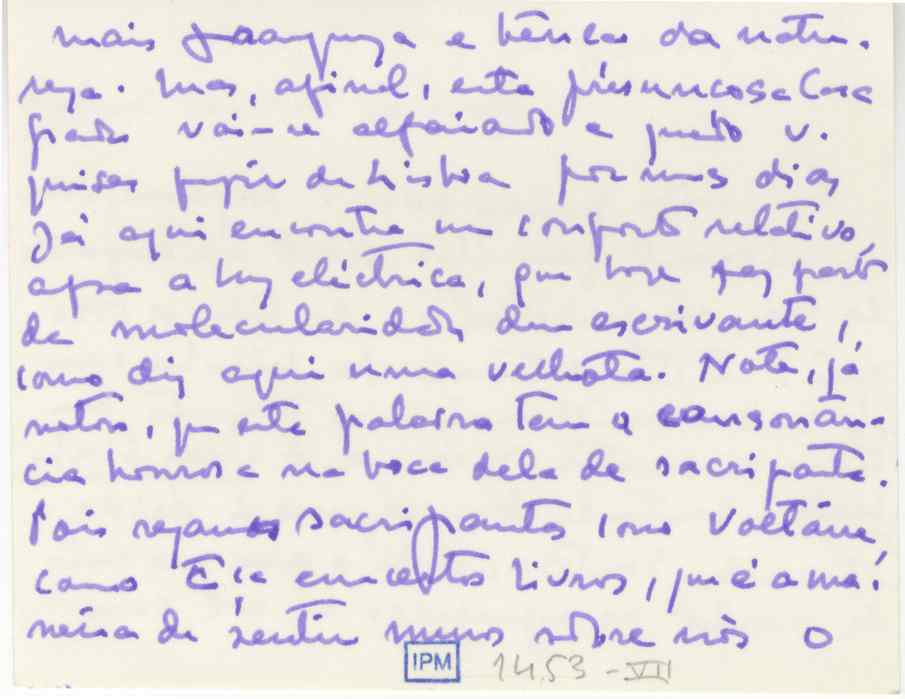 mais e bênção da natu-
reza. Mas, afinal, esta presunçosa Casa
grande vai-se alfaiando e pode v.
quiser fugir de Lisboa por uns dias
Já aqui encontra um conforto relativo,
afora a luz eléctrica, que hoje faz parte
da molecularidade dum escrivante,
como diz aqui uma velhota. Note, já
notou, que esta palavra tem a consonân-
cia honrosa na boca dela de sacripante.
Pois sejamos sacripantes como Voltaire
como Eça em certos livros, que é a ma-
neira de sentir menos sobre nós o
IPM 1453-VII